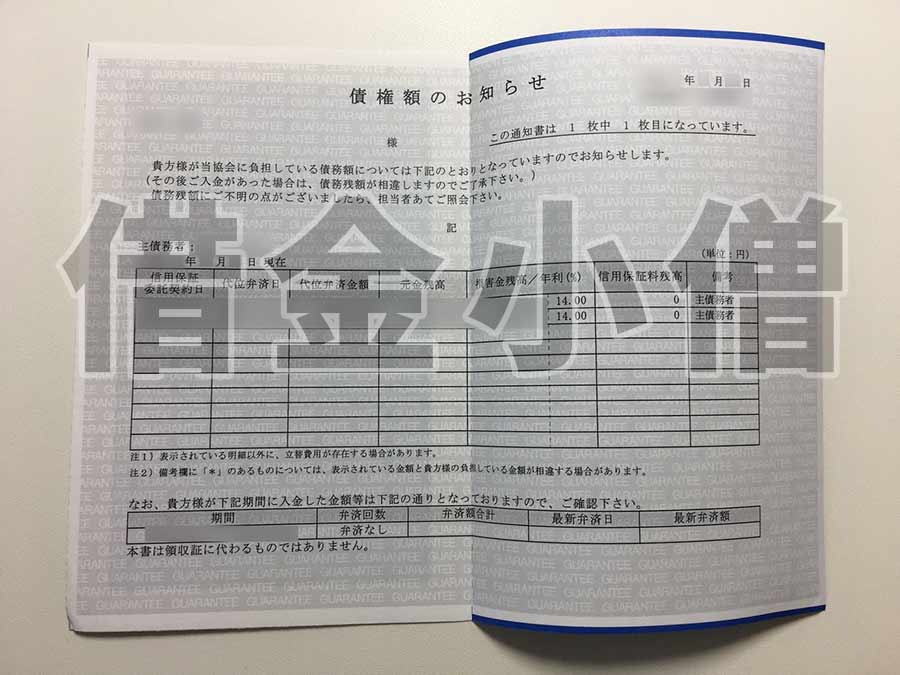 債権額のお知らせ
年 月 日
この通知書は 1 枚中 1 枚目になっています。
様
貴方様が当協会に負担している債務額については下記のとおりとなっていますのでお知らせします。
(その後ご入金があった場合は、債務残額が相違しますのでご了承下さい。)
債務残額にご不明の点がございましたら、担当者あてご照会下さい。
記
主債務者:
年 月 日 現在
(単位:円)
信用保証委託契約日 代位弁済日 代位弁済金額 元金残高 損害金残高/年利(%) 信用保証料残高 備考
14.00 0 主債務者
14.00 0 主債務者
注1)表示されている明細以外に、立替費用が存在する場合があります。
注2)備考欄に「*」のあるものについては、表示されている金額と貴方様の負担している金額が相違する場合があります。
なお、貴方様が下記期間に入金した金額等は下記の通りとなっておりますので、ご確認下さい。
期間 弁済回数 弁済額合計 最新弁済日 最新弁済額
弁済なし
本書は領収証に代わるものではありません。
借金小僧
GUARANTEE GUARANTEE GUARANTEE GUARANTEE